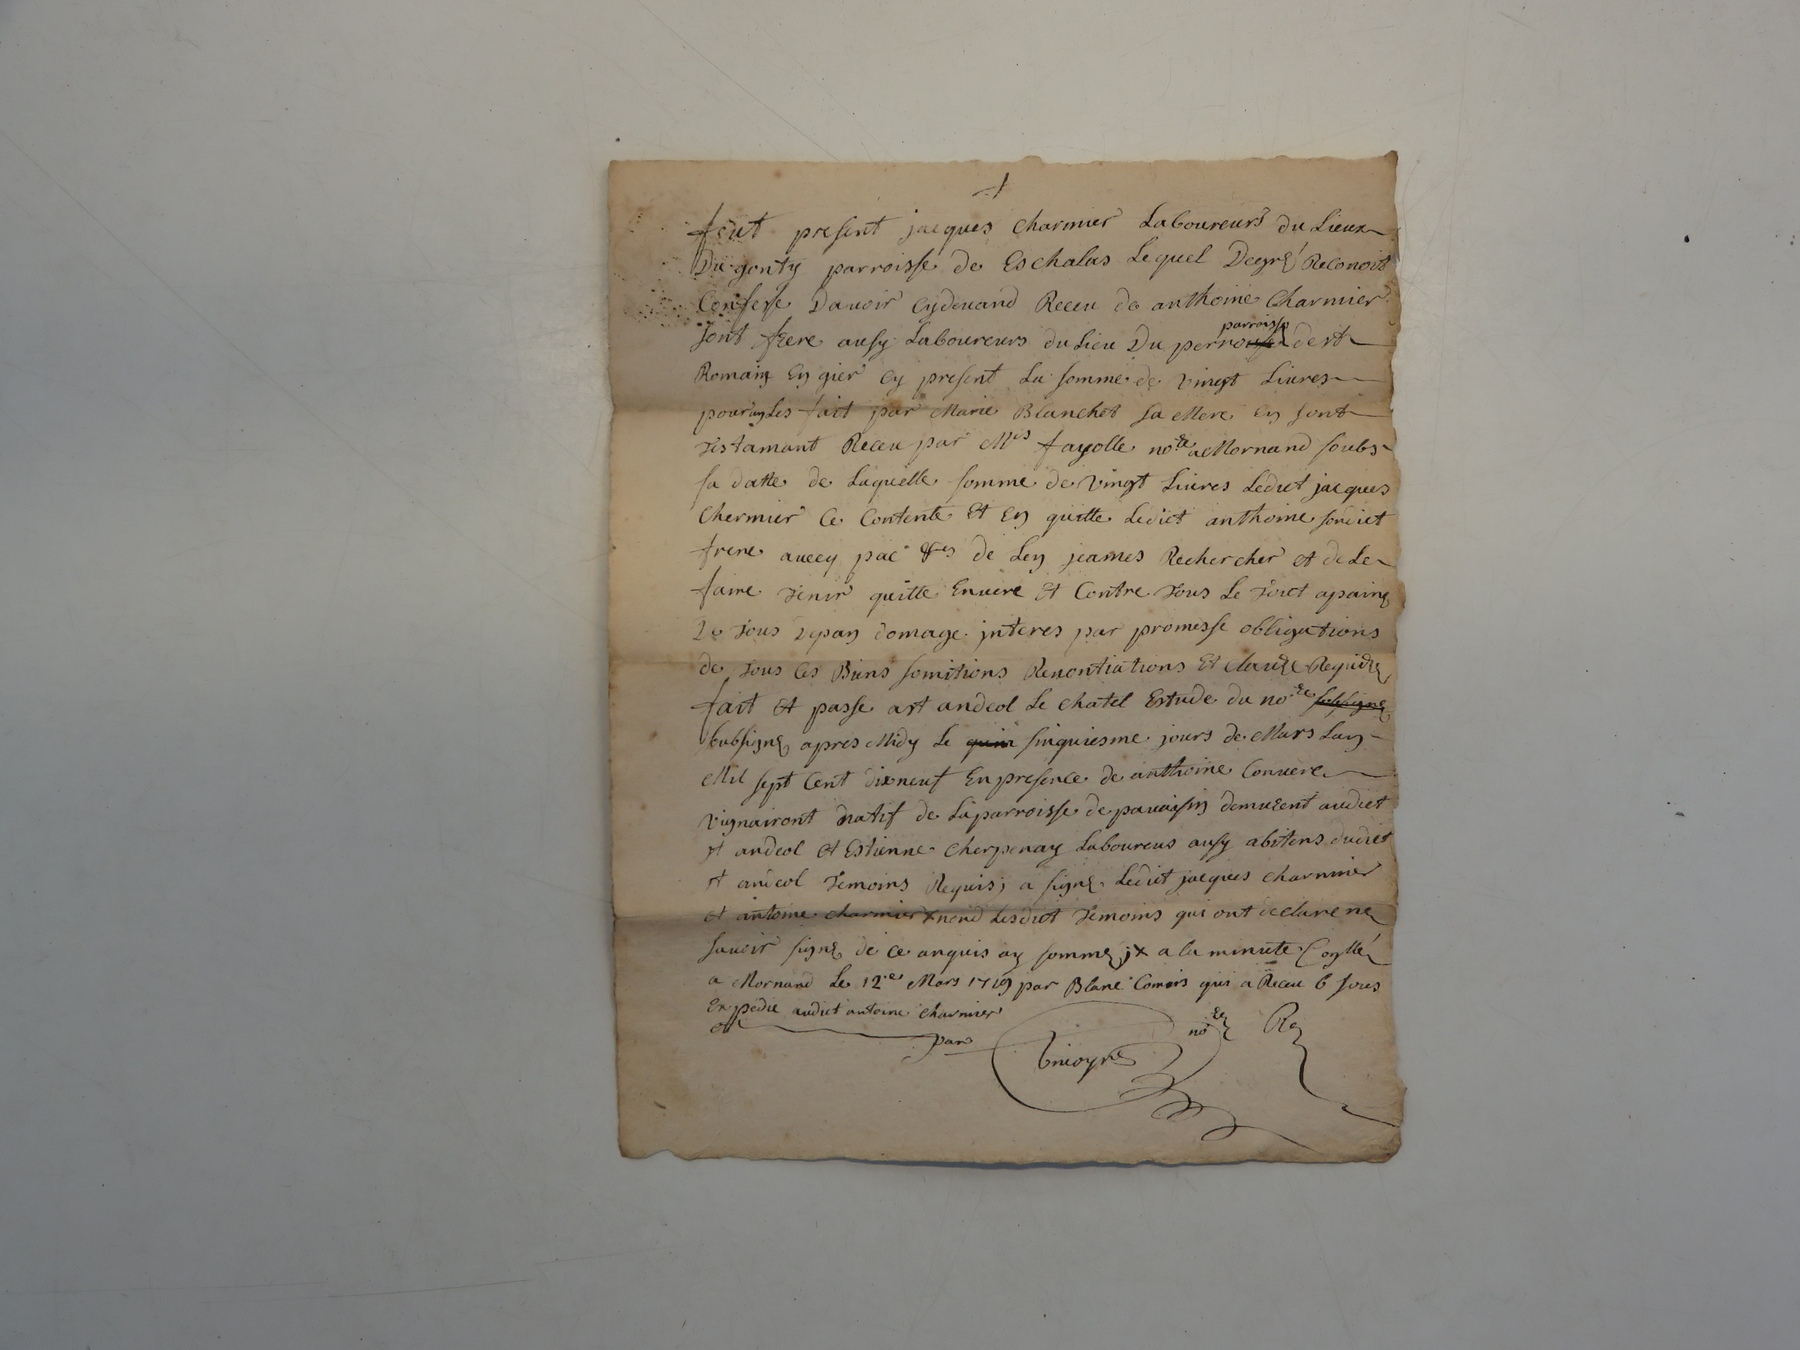 feut present jacques charmier Laboureurs du Lieux
Du gonty parroisse de Eschalas Lequel Degré Reconoit
Confesse Davoir cydevand Receu de anthoine Charmier
sont frere ausy Laboureurs du Lieu Du perron parroisse de st
Romain En gier cy present La somme de vingt Livres
pour fait par Marie Blanchet sa Mere en sont
Testamant Receu par Mes fayolle nore a Mornand soubs
sa datte de Laquelle somme de vingt Livres Ledict jacques
Chermier Ce Contente Et En quitte Ledict anthoine sondict
frere avecq pac de Len jeames Rechercher et de Le
faire Tenir quitte Envere Et Contre Tous Le Tout apaine
De Tous depan domage interes par promesse obligations
de Tous Ces Biens somitions Renontiations Et clauze Requize
fait Et passe a st andeol Le chatel Estude du nore
subsigne apres Midy Le sinquiesme jours de Mars Lan
Mil sept Cent dixneuf En presence de anthoine Convere
vignairont natif de La parroisse de pavaisin demurent audict
st andeol et Estienne Cherpenay Laboureus ausy abitens dudict
st andeol Temoins Requis, a signe Ledict jacques charmier
et antoine charmier nond Lesdict Temoins qui ont declare ne
savoir signe de ce anquis ay somme a la minute Conlle
a Mornand Le 12e Mars 1719 par Blanc Comis qui a Receu 6 sous
Expedie audict antoine charmier
par
nore Ro